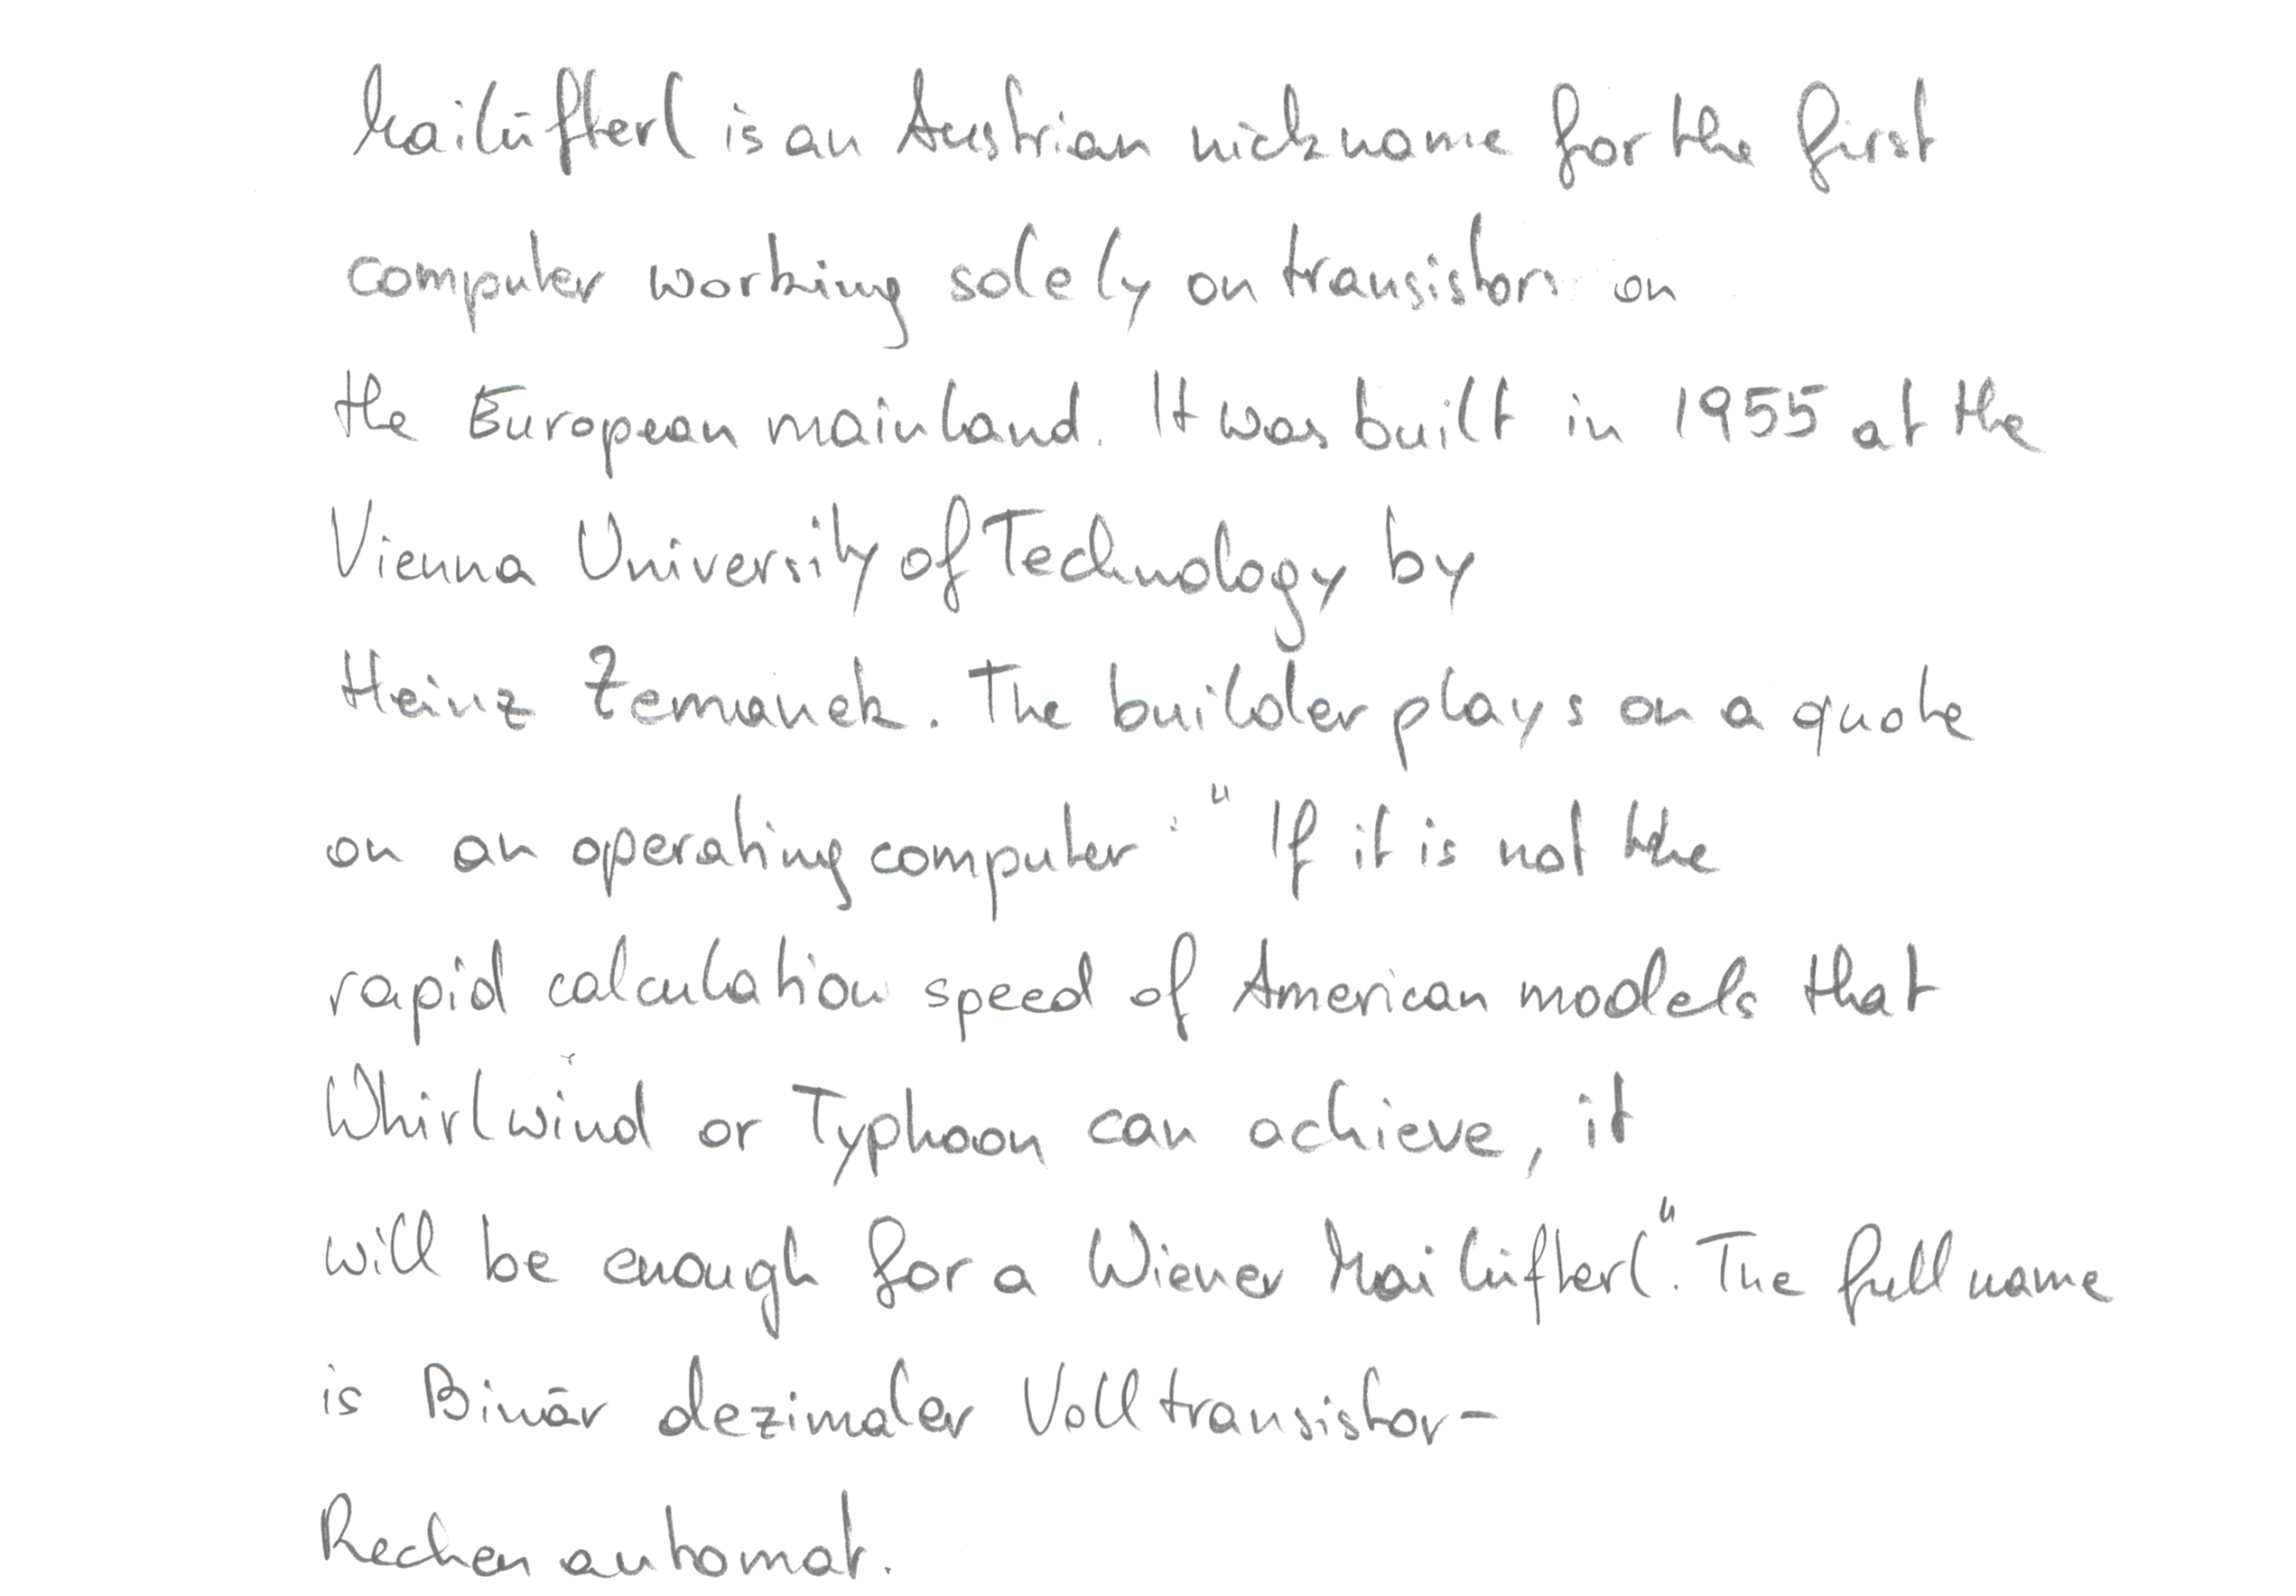 Mailüfterl is an Austrian nickname for the first
computer working solely on transistors on
the European mainland. It was built in 1955 at the
Vienna University of Technology by
Heinz Zemanek. The builder plays on a quote
on an operating computer: "If it is not the
rapid calculation speed of American models that
Whirlwind or Typhoon can achieve, it
will be enough for a Wiener Mailüfterl". The full name
is Binär dezimaler Volltransistor-
Rechenautomat.